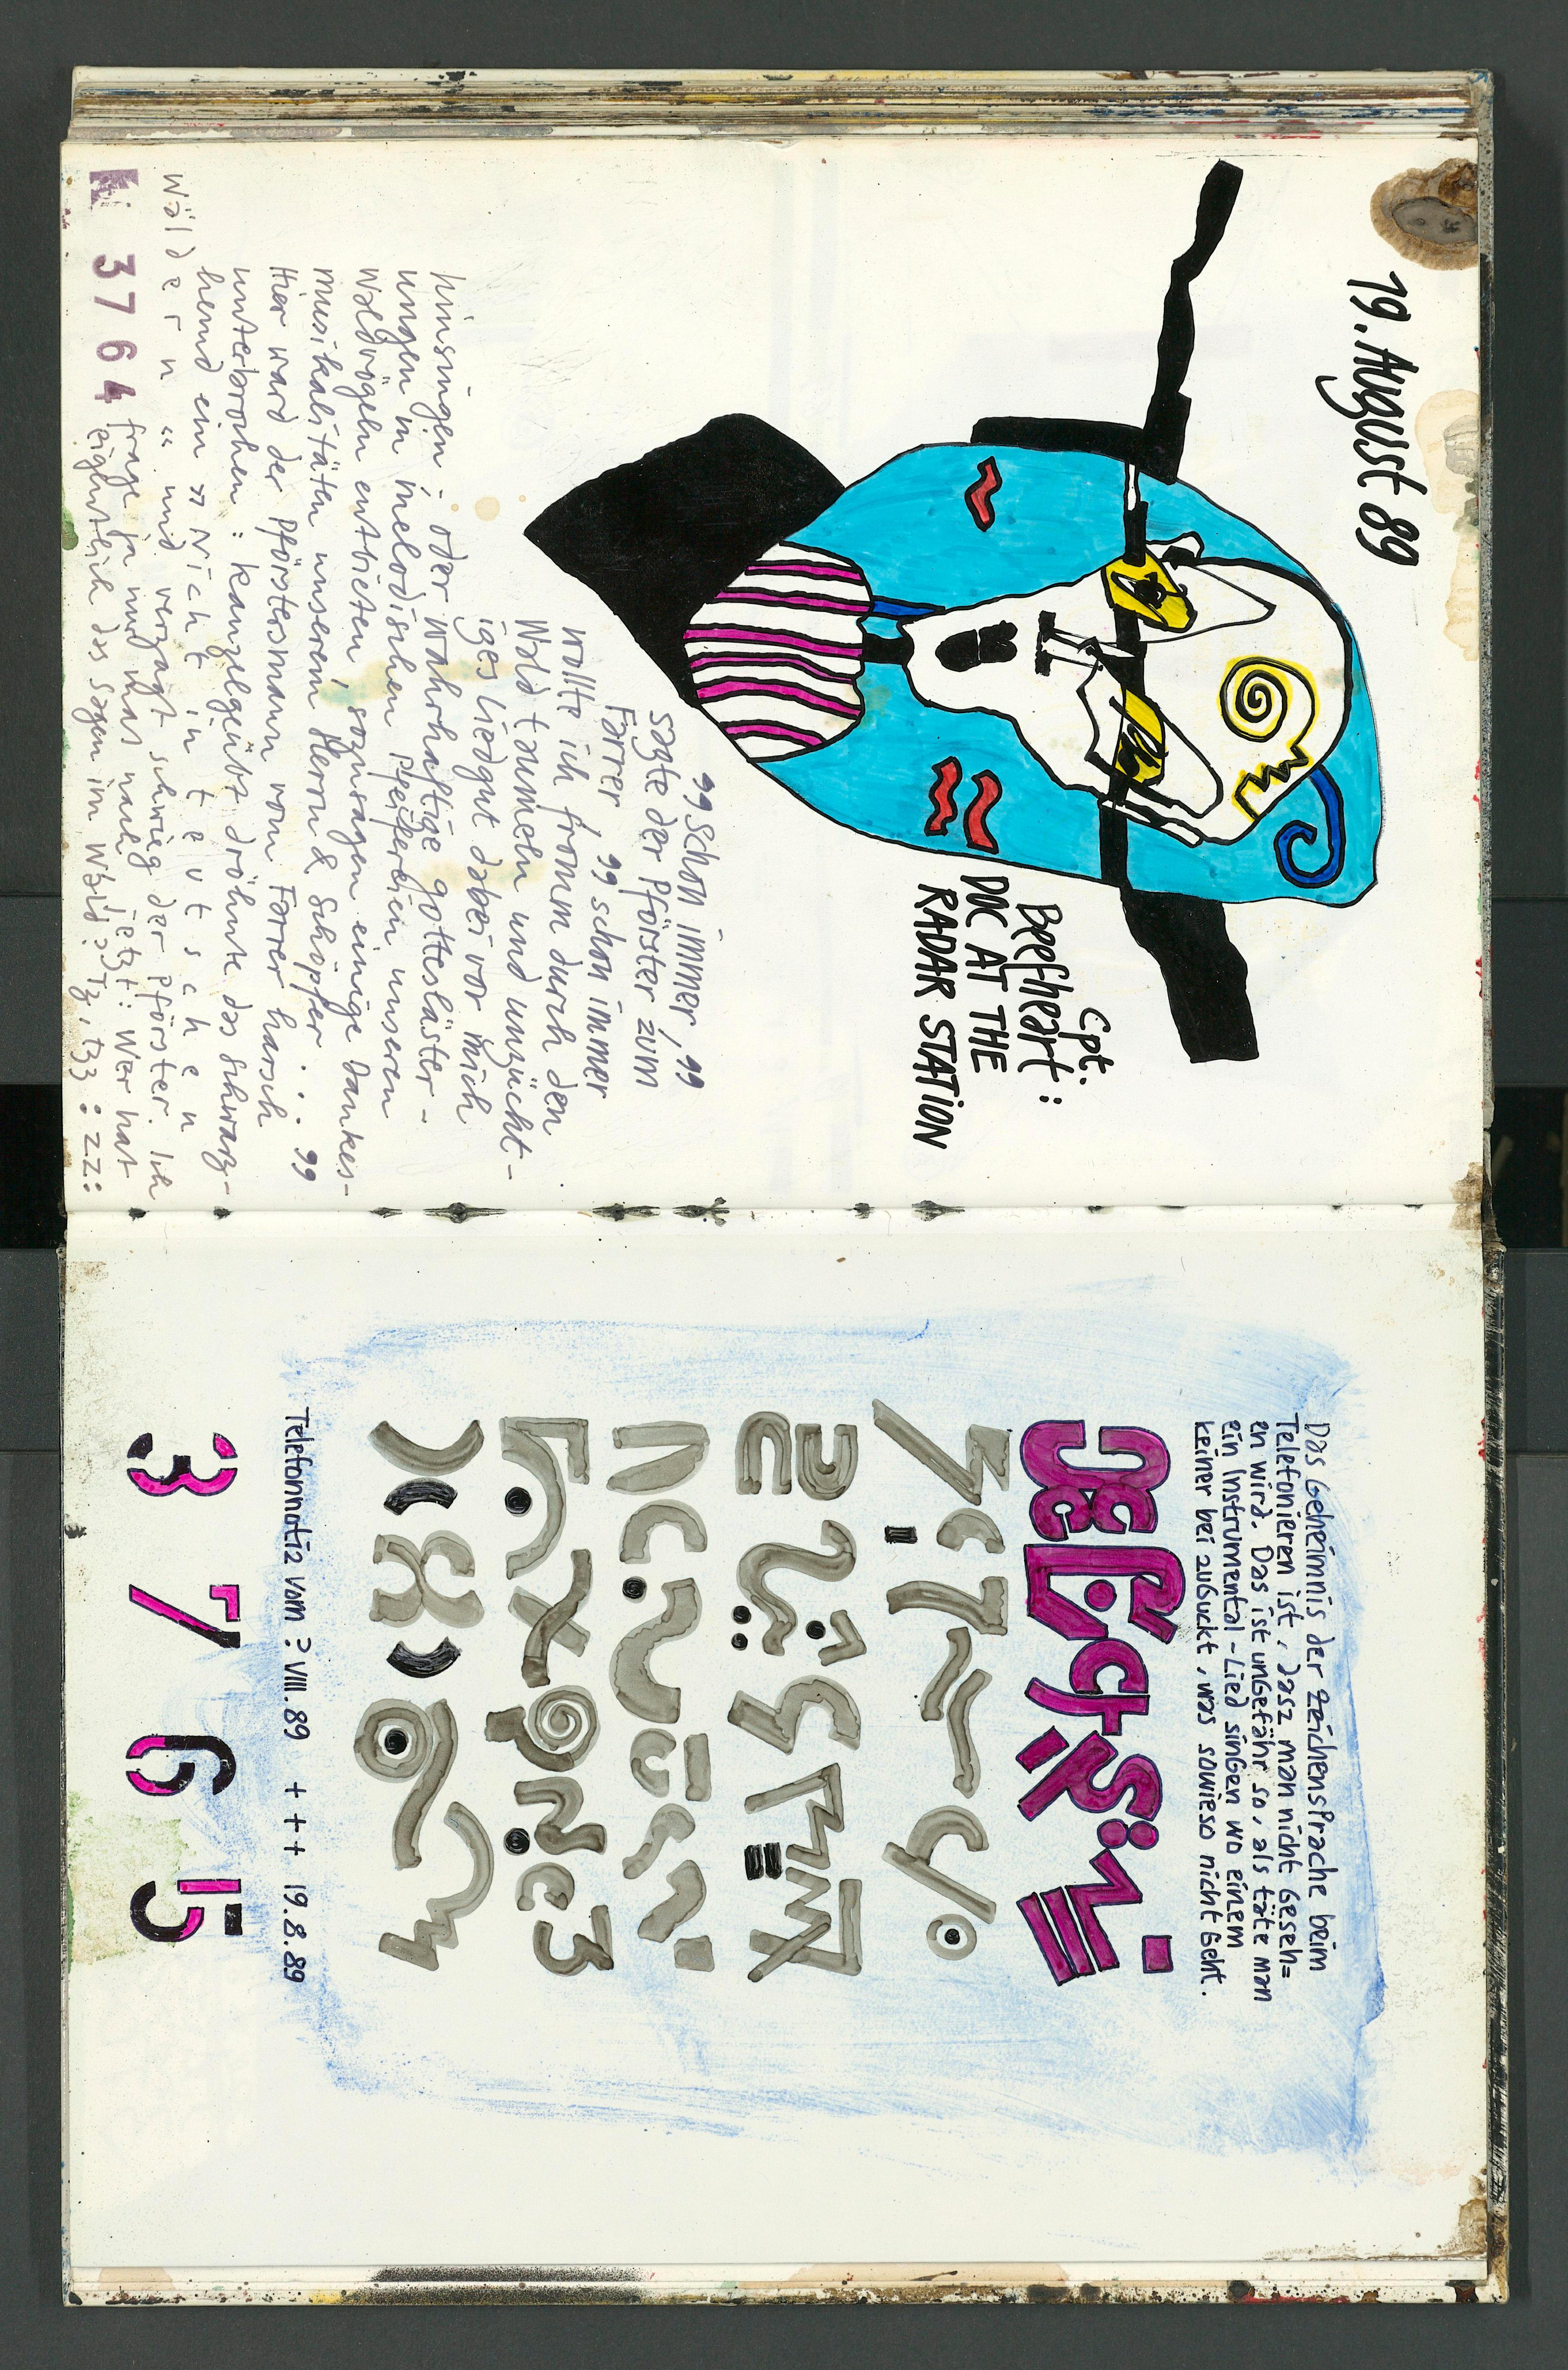 19. August 89
Cpt.
Beefheart :
DOC AT THE
RADAR STATION
„Schon immer,“
sagte der Pförster zum
Farrer „schon immer
wollte ich fromm durch den
Wald taumeln und unzücht-
iges Liedgut dabei vor mich
hinsingen - oder wahrhaftige gotteslãster-
ungen in melodischen Pfeifereien unseren
Waldvögeln entbieten, sozusagen einige Dankes-
musikalitäten unserem Herrn & Schöpfer . . . “
Hier ward der Pförstersmann vom Farrer harsch
unterbrochen : kanzelgeübt dröhnte das schwarz-
hemd ein » N i c h t i n t e u t s c h e n
W ä l d e r n « und verzagt schwieg der Pförster. Ich
frage ja nur mas nach jetzt: Wer hat
eigentlich das sagen im Wald ? Tz, tzz : zz :
3764
Das Geheimnis der ZeichensPrache beim
Telefonieren ist, dasz man nicht Geseh=
en wird. Das ist unGefähr so, als täte man
ein Instrumental-Lied sinGen wo einem
keiner bei zuGuckt, was sowieso nicht Geht.
Telefonnotiz vom ? VIII. 89 + + + 19.8.89
3 7 6 5